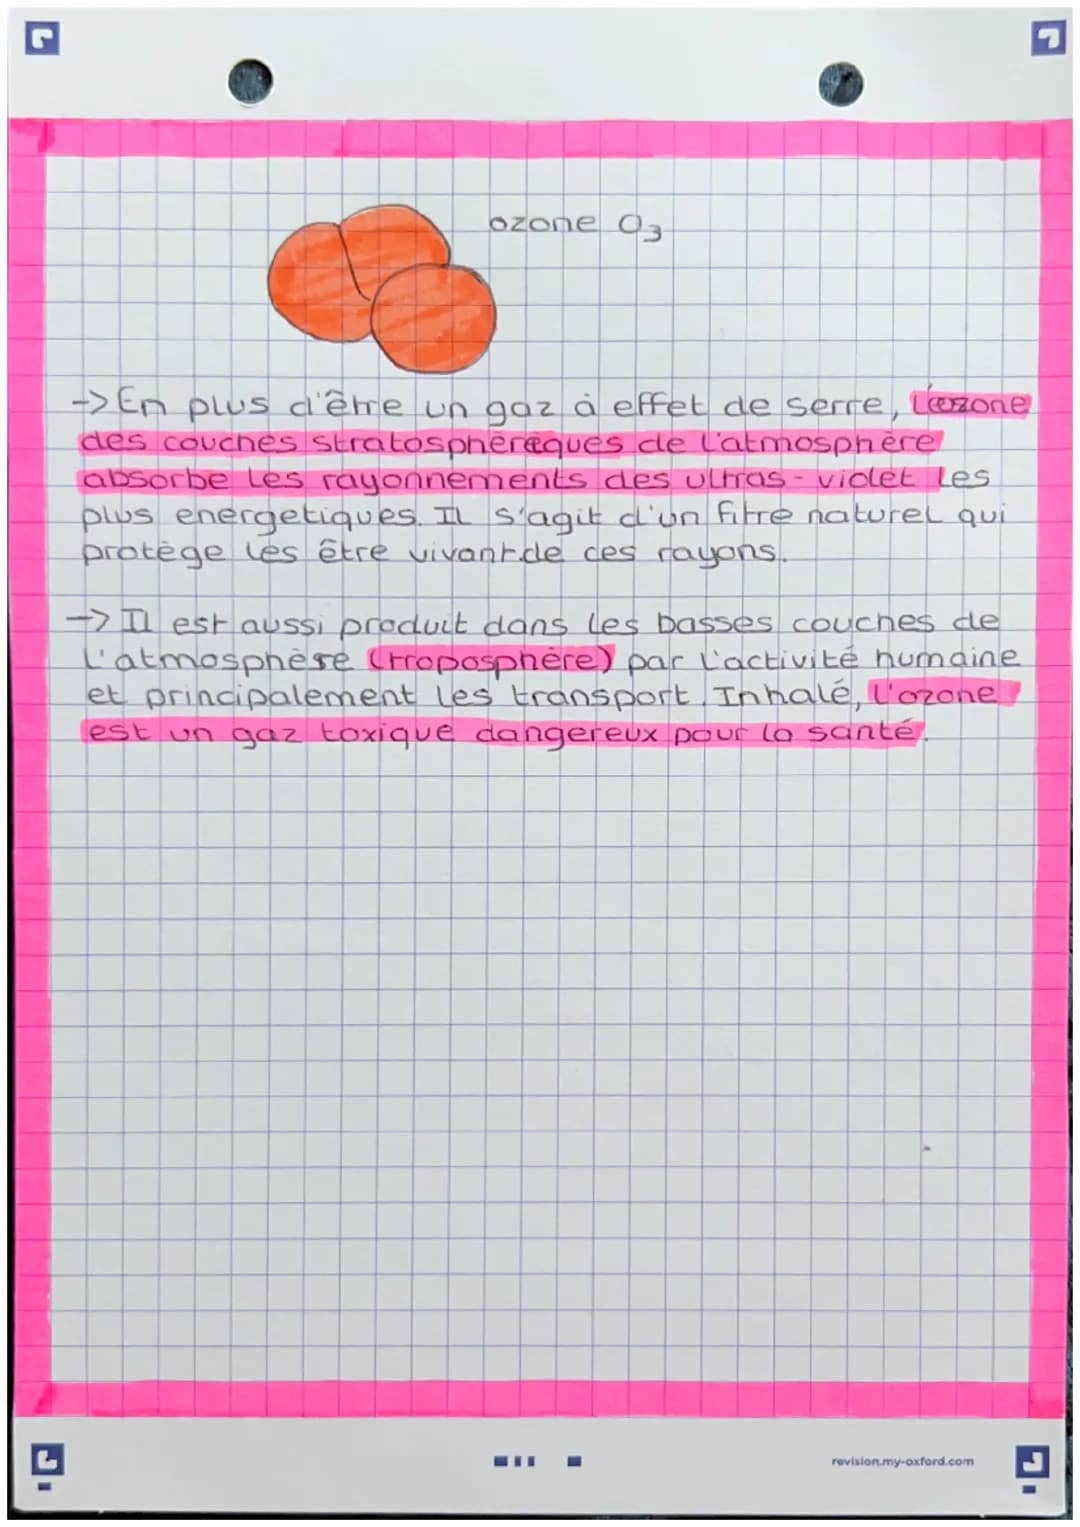 ozone O3
-> En plus d'être un gaz à effet de serre, l'ozone
des couches stratosphèreques de l'atmosphère
absorbe les rayonnements des ultras-violet les
plus energetiques. Il s'agit d'un filtre naturel qui
protège les être vivant.de ces rayons.
-> Il est aussi produit dans les basses couches de
l'atmosphère (troposphère) par l'activité humaine
et principalement les transport. Inhalé, l'ozone
est un gaz toxique dangereux pour la santé.
revision.my-oxford.com